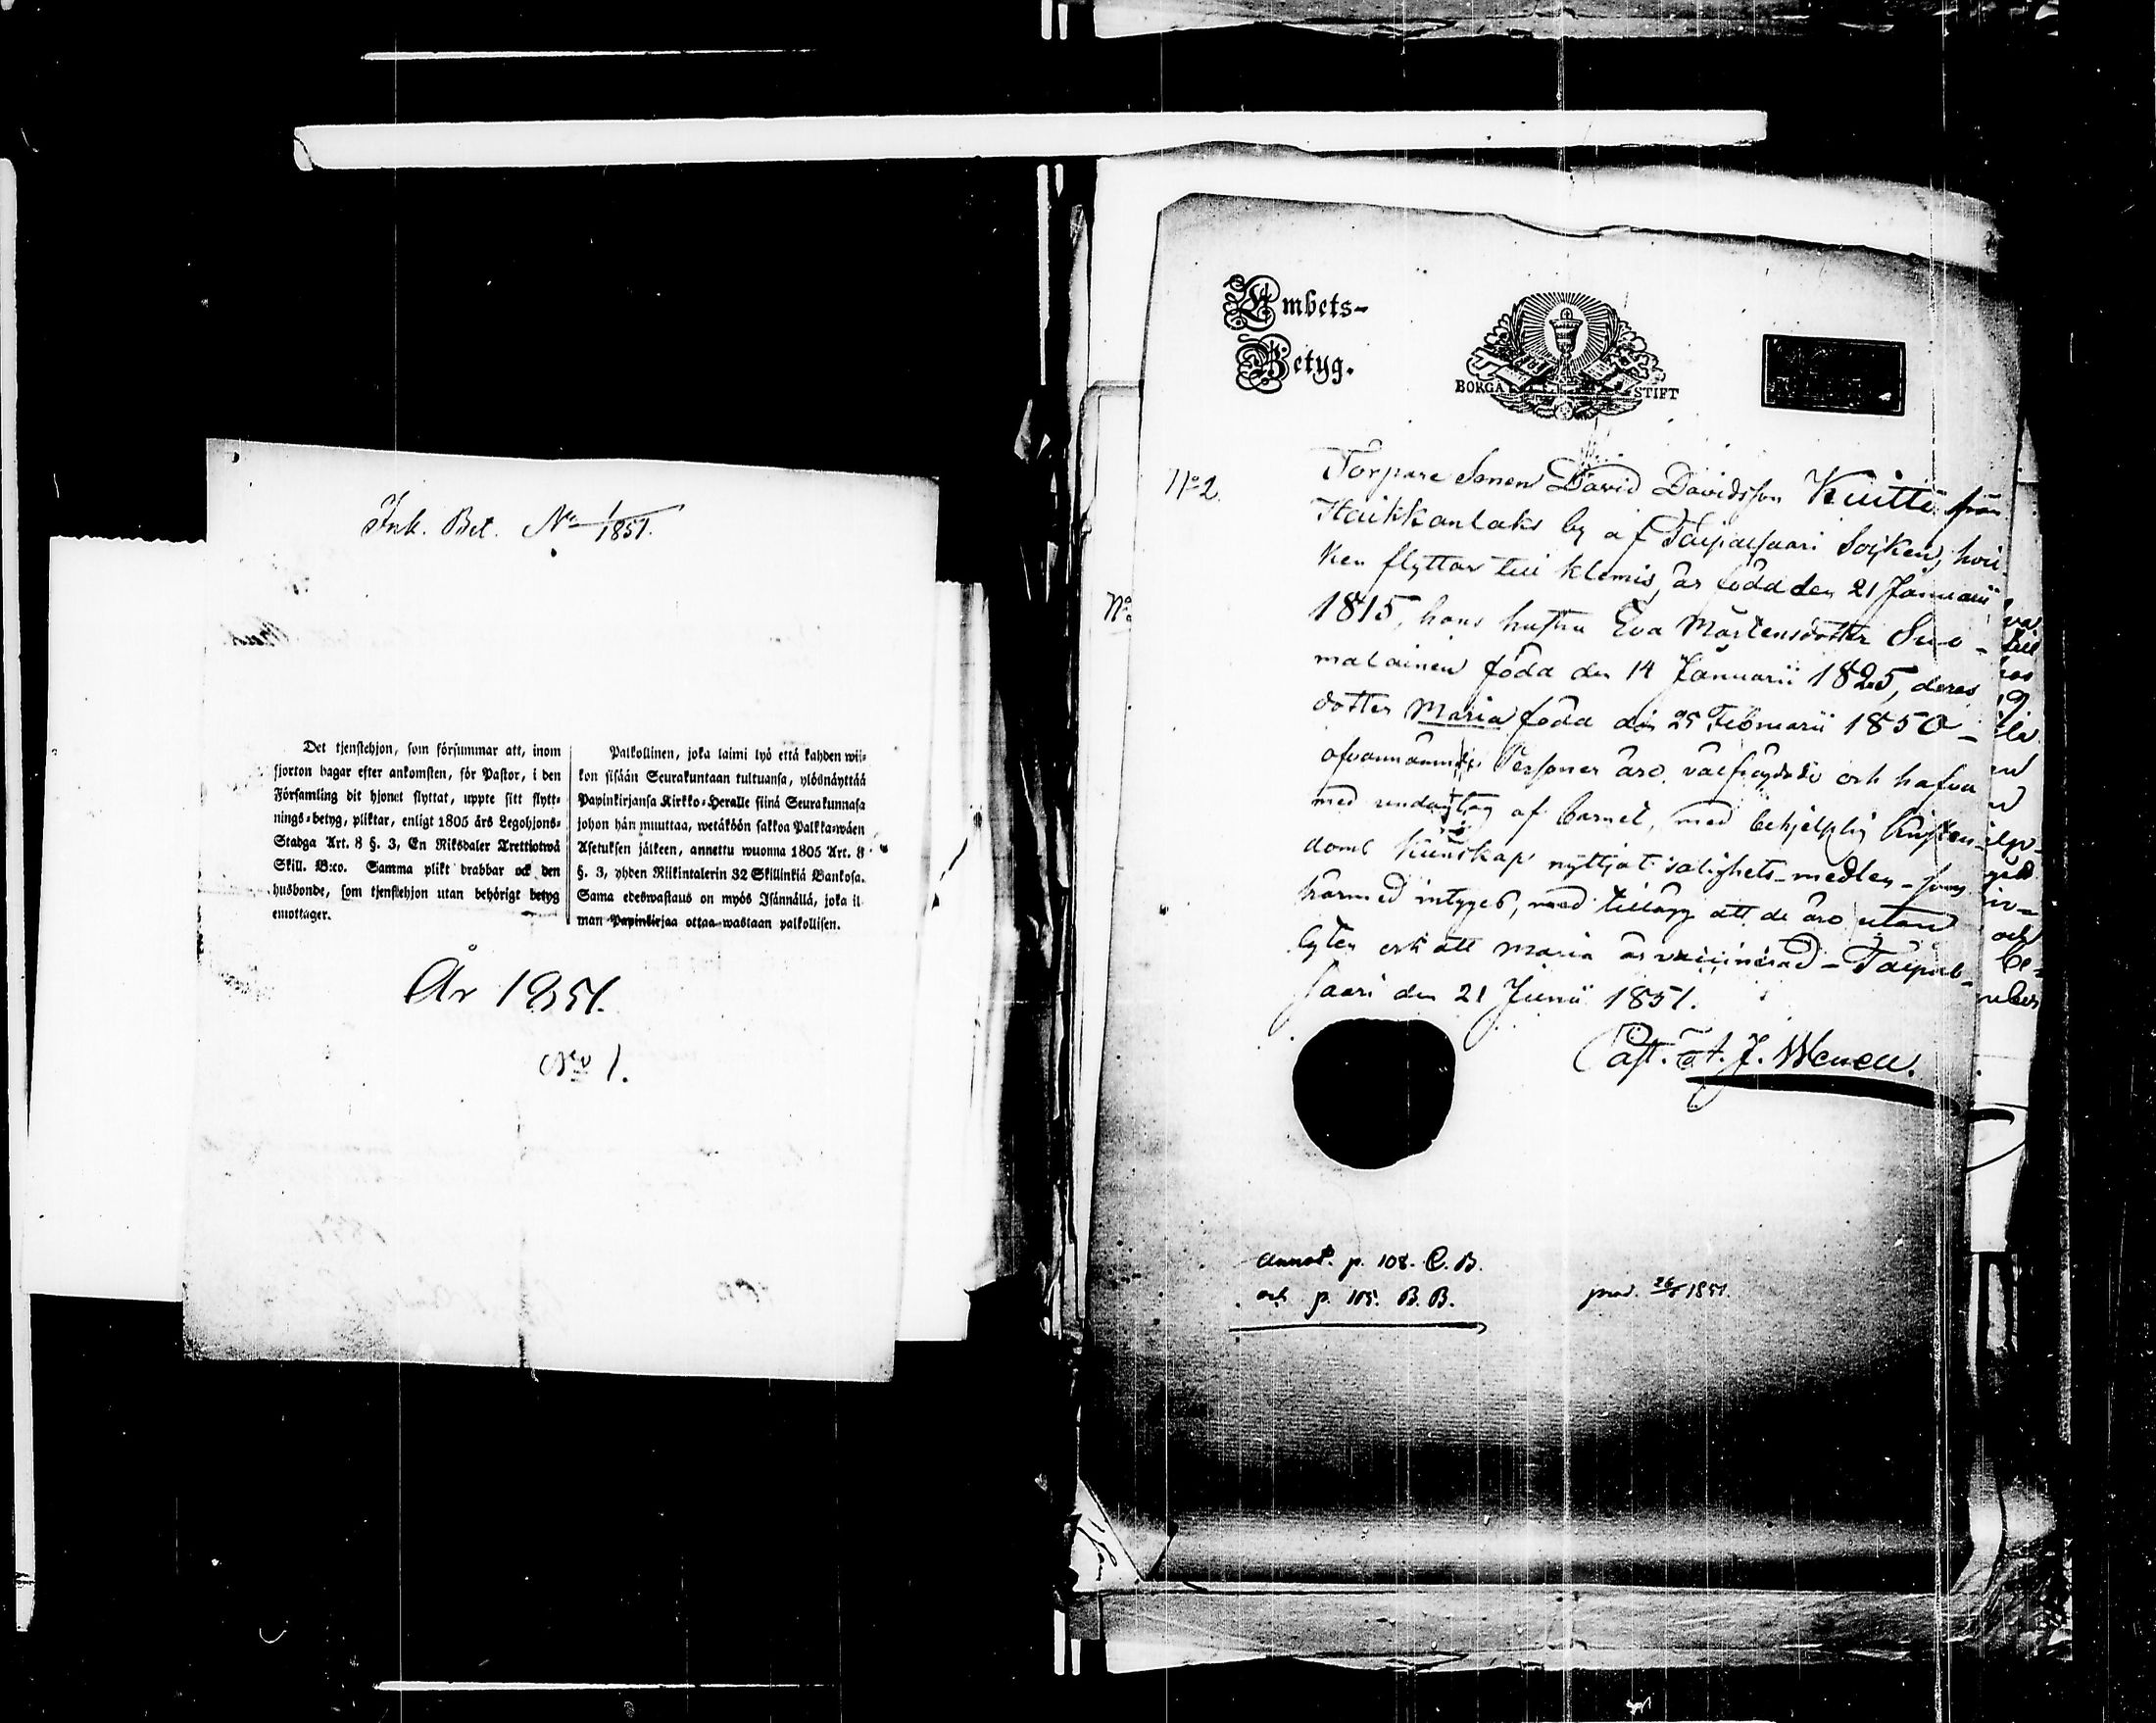 Ink. Bet. No 1/1851.
Det tjenstehjon, som försummar att, inom
fjorton dagar efter ankomsten, för Pastor, i den
Församling dit hjonet flyttat, uppte sitt flytt-
nings-betyg, pliktar, enligt 1805 års Legohjons-
Stadga Art. 8 §. 3, En Riksdaler Trettiotwå
Skill. B:co. Samma plikt drabbar ock den
husbonde, som tjenstehjon utan behörigt betyg
emottager.
Palkollinen, joka laimi lyö että kahden wii-
kon sisään Seurakuntaan tultuansa, ylösnäyttää
Papinkirjansa Kirkko-Heralle siinä Seurakunnasa
johon hän muuttaa, wetäköön sakkoa Palkka-wäen
Asetuksen jälkeen, annettu wuonna 1805 Art. 8
§. 3, yhden Riikintalerin 32 Skillinkiä Bankosa.
Sama edeswastaus on myös Isännällä, joka il
man Papinkirjaa ottaa wastaan palkollisen.
År 1851.
No 1.
Embets-
Betyg.
BORGÅ STIFT
No 2.
Torpare Sonen David Davidsson Kuitti från
Haikkanlaks by af Taipalsaari Socken, hvil-
ken flyttar till Klemis, är född den 21 Januarii
1815, hans hustru Eva Mårtensdotter Suo-
malainen född den 14 Januarii 1825, deras
dotter Maria född den 25 Februarii 1850 -
ofvannämnde Personer äro välfrejdade och hafva
med undantag af barnet, med behjelplig Kristen-
doms kunskap nyttjat salighets-medlen - som
härmed intygas, med tillägg att de äro utan
lyten och att Maria är vaccinerad - Taipal-
saari den 21 Junii 1851.
Past.
No
Annot. p. 108. C. B.
och p. 105. B. B.
1851.